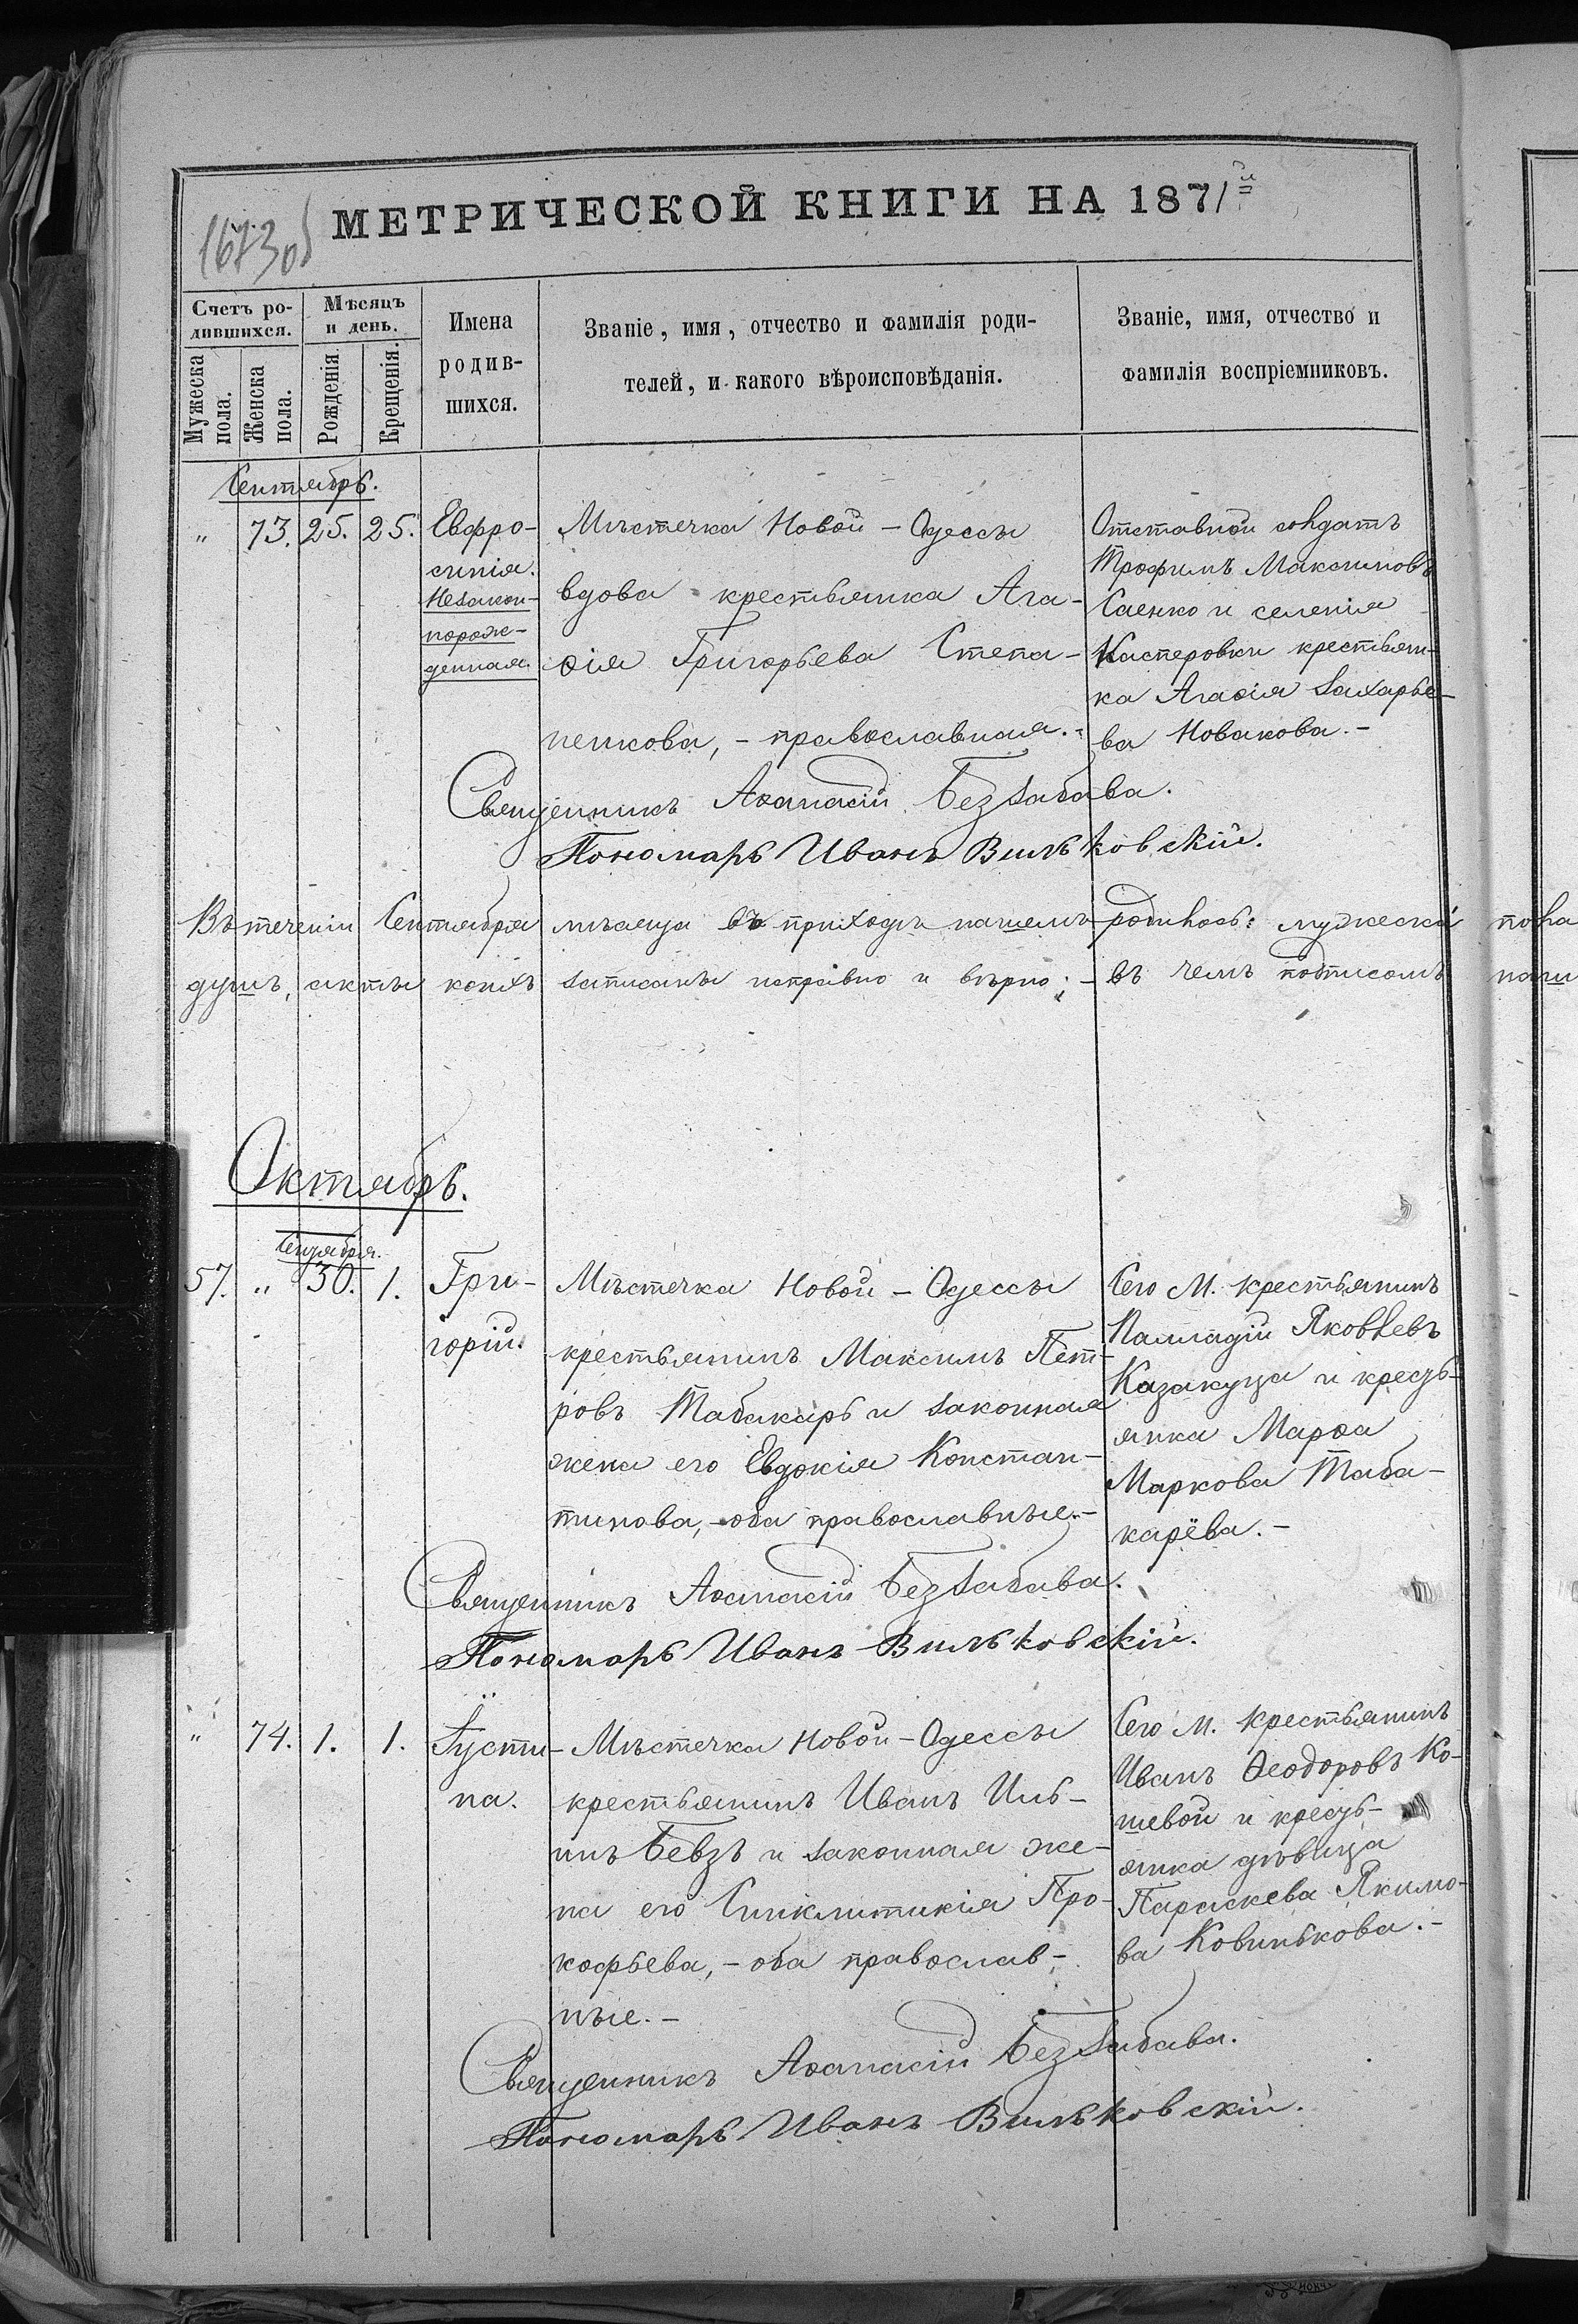 1673 об
МЕТРИЧЕСКОЙ КНИГИ НА 1871й
Счетъ ро-
дившихся.
Мужеска пола.
Женска пола.
Мѣсяцъ
и день.
Рожденія.
Крещенія.
Имена
родив-
шихся.
Званіе, имя, отчество и фамилія роди-
телей, и какого вѣроисповѣданія.
Званіе, имя, отчество и
фамилія воспріемниковъ.
Сентябрь.
" 73. 25. 25.
Евфро-
синія.
Незакон-
норож-
денная.
Мѣстечка Новой-Одессы
вдова крестьянка Ага-
ѳія Григорьева Степа-
ненкова, - православная.-
Отставной солдатъ
Трофимъ Максимовъ
Саенко и селенія
Касперовки крестьян-
ка Агаѳія Захарье-
ва Новакова.-
Священникъ Аѳанасій Беззабава.
Пономарь Иванъ Вильковскій.
Въ теченіи Сентября мѣсяца въ приходѣ нашемъ родилось: мужеска пола
душъ, акты коихъ записаны исправно и вѣрно; - въ чемъ подписомъ наши
Октябрь.
Сентября.
57. " 30. 1.
Гри-
горій.
Мѣстечка Новой-Одессы
крестьянинъ Максимъ Пет-
ровъ Табакарь и законная
жена его Евдокія Констан-
тинова, - оба православные.-
Сего М. крестьянинъ
Палладій Яковлевъ
Казакуца и кресть-
янка Марѳа
Маркова Таба-
карёва.-
Священникъ Аѳанасій Беззабава.
Пономарь Иванъ Вильковскій.
" 74. 1. 1.
Iусти-
на.
Мѣстечка Новой-Одессы
крестьянинъ Иванъ Иль-
инъ Бевзъ и законная же-
на его Синклитикія Про-
кофьева, - оба православ-
ные.-
Сего М. крестьянинъ
Иванъ Ѳеодоровъ Ко-
шевой и кресть-
янка дѣвица
Параскева Якимо-
ва Ковинькова.-
Священникъ Аѳанасій Беззабава.
Пономарь Иванъ Вильковскій.